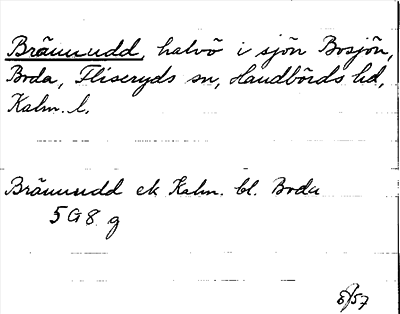 Brännudd, halvö i sjön Bosjön,
Boda, Fliseryds sn, Handbörds hd,
Kalm. l.
Brännudd ek Kalm. bl. Boda
5G8 g
57